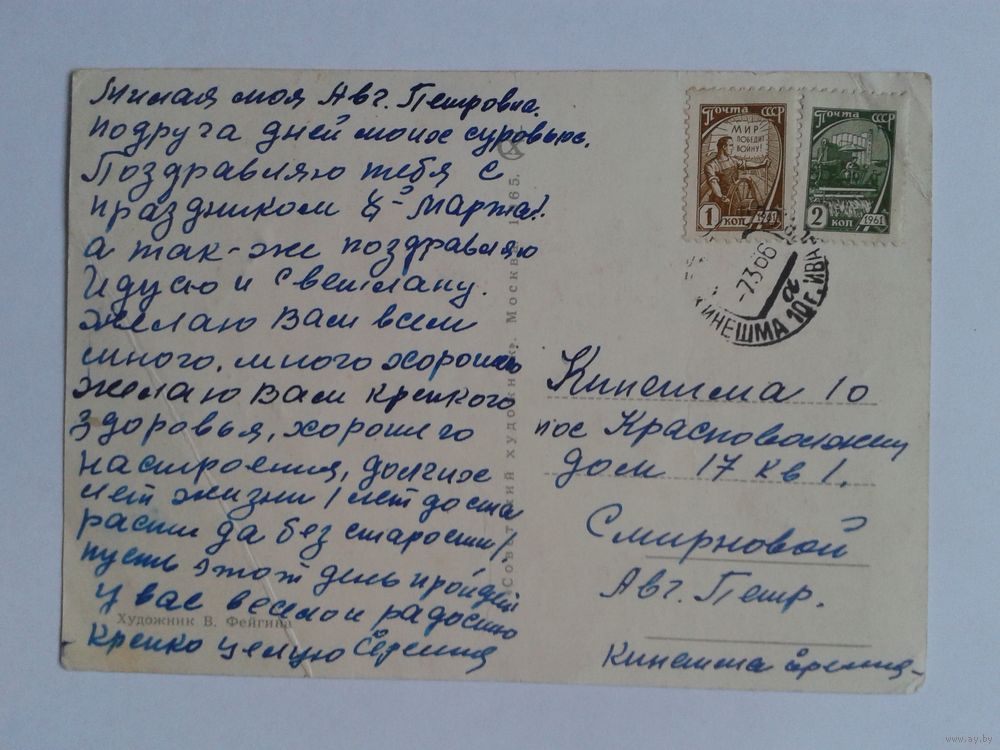 Милая моя Авг. Петровна.
подруга дней моих суровых.
Поздравляю тебя с
праздником 8-Марта!
а так-же поздравляю
и Дусю и Светлану.
желаю Вам всем
много, много хороше
желаю Вам крепкого
здоровья, хорошего
настроения, долгих
лет жизни / лет доста
расти да без старости /
пусть этот день пройдет
у вас весело и радостно
Крепко целую
Художник В. Фейгина
Советский художник. Москва. 1965.
ПОЧТА СССР
МИР
ПОБЕДИТ
ВОЙНУ!
1 КОП 1961
ПОЧТА СССР
2 КОП 1961
-7366
КИНЕШМА 10 Г. ИВАН
Кинешма 10
пос Красноволжец
дом 17 кв 1.
Смирновой
Авг. Петр.
Кинешма
www.ay.by